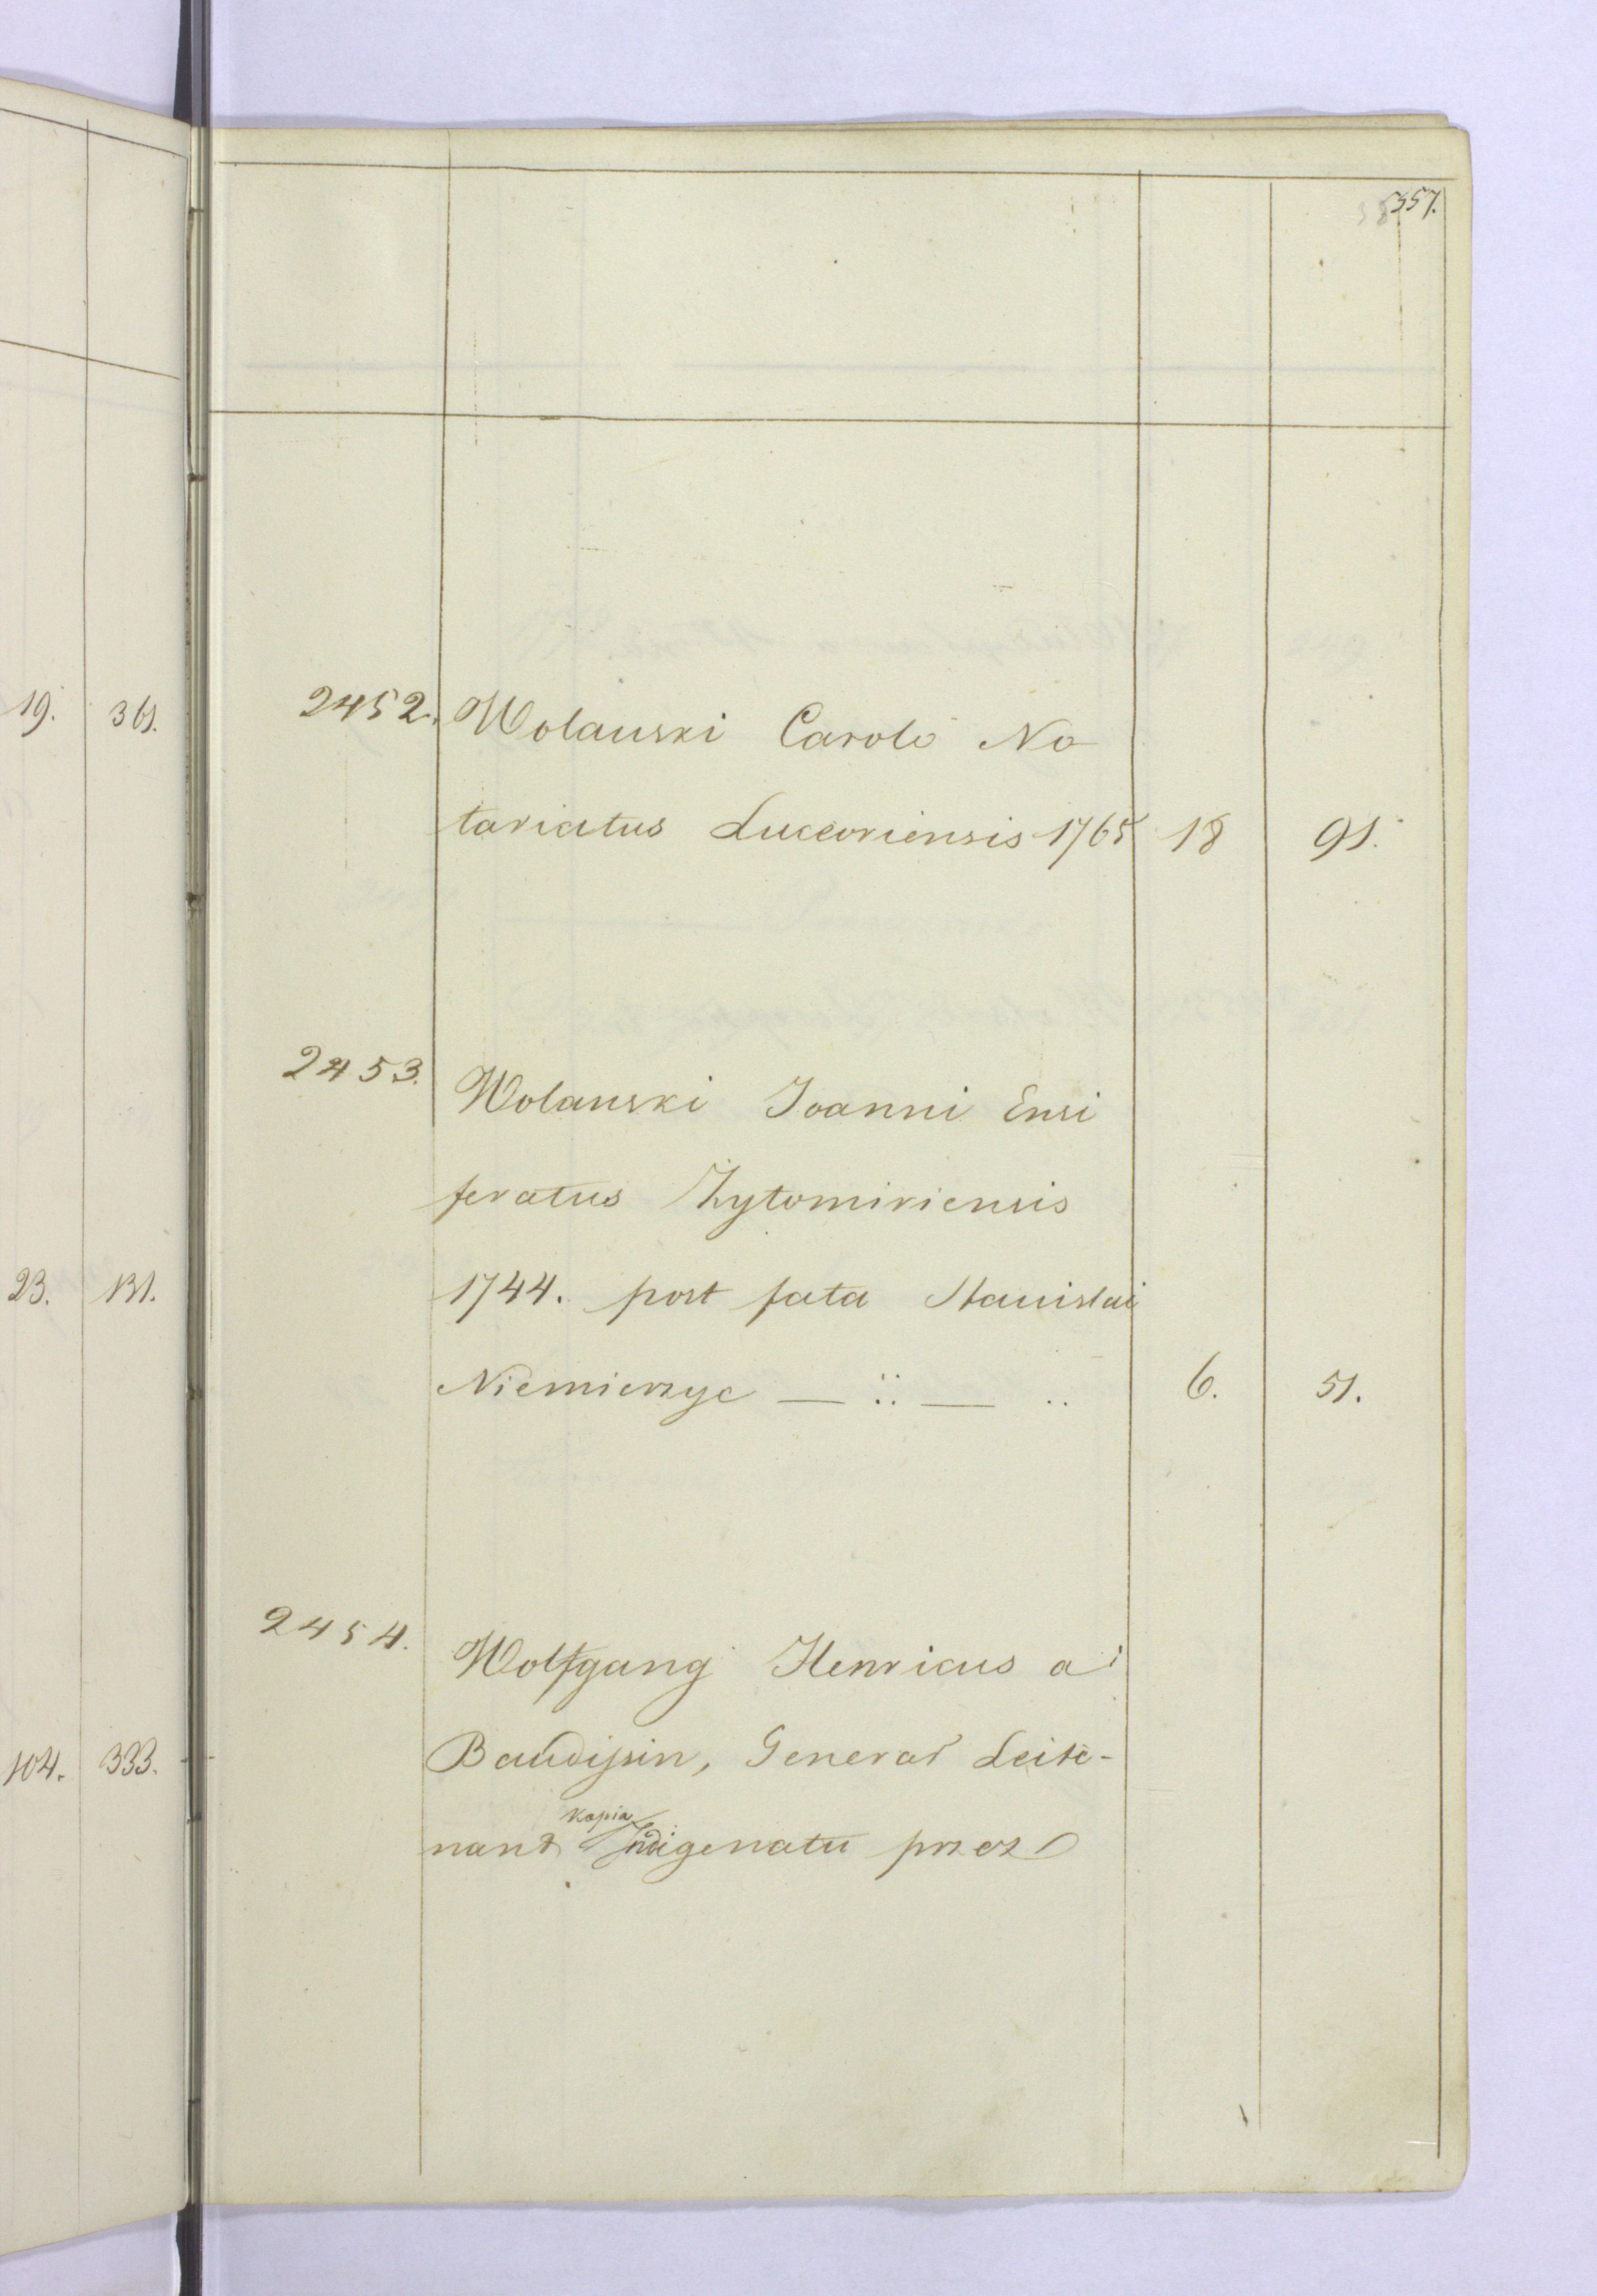 357.
19. 361.
2452. Wolanski Carolo No
tariatus Luceoriensis 1765 18 91.
2453. Wolanski Joanni Ensi
feratus Żytomiriensis
23. 131.
1744. post fata Stanislai
Niemierzyc — :: — .. 6. 51.
2454. Wolfgang Henricus a
Baudissin, General Leite-
104. 333.
kopia
nant Indigenatu przez